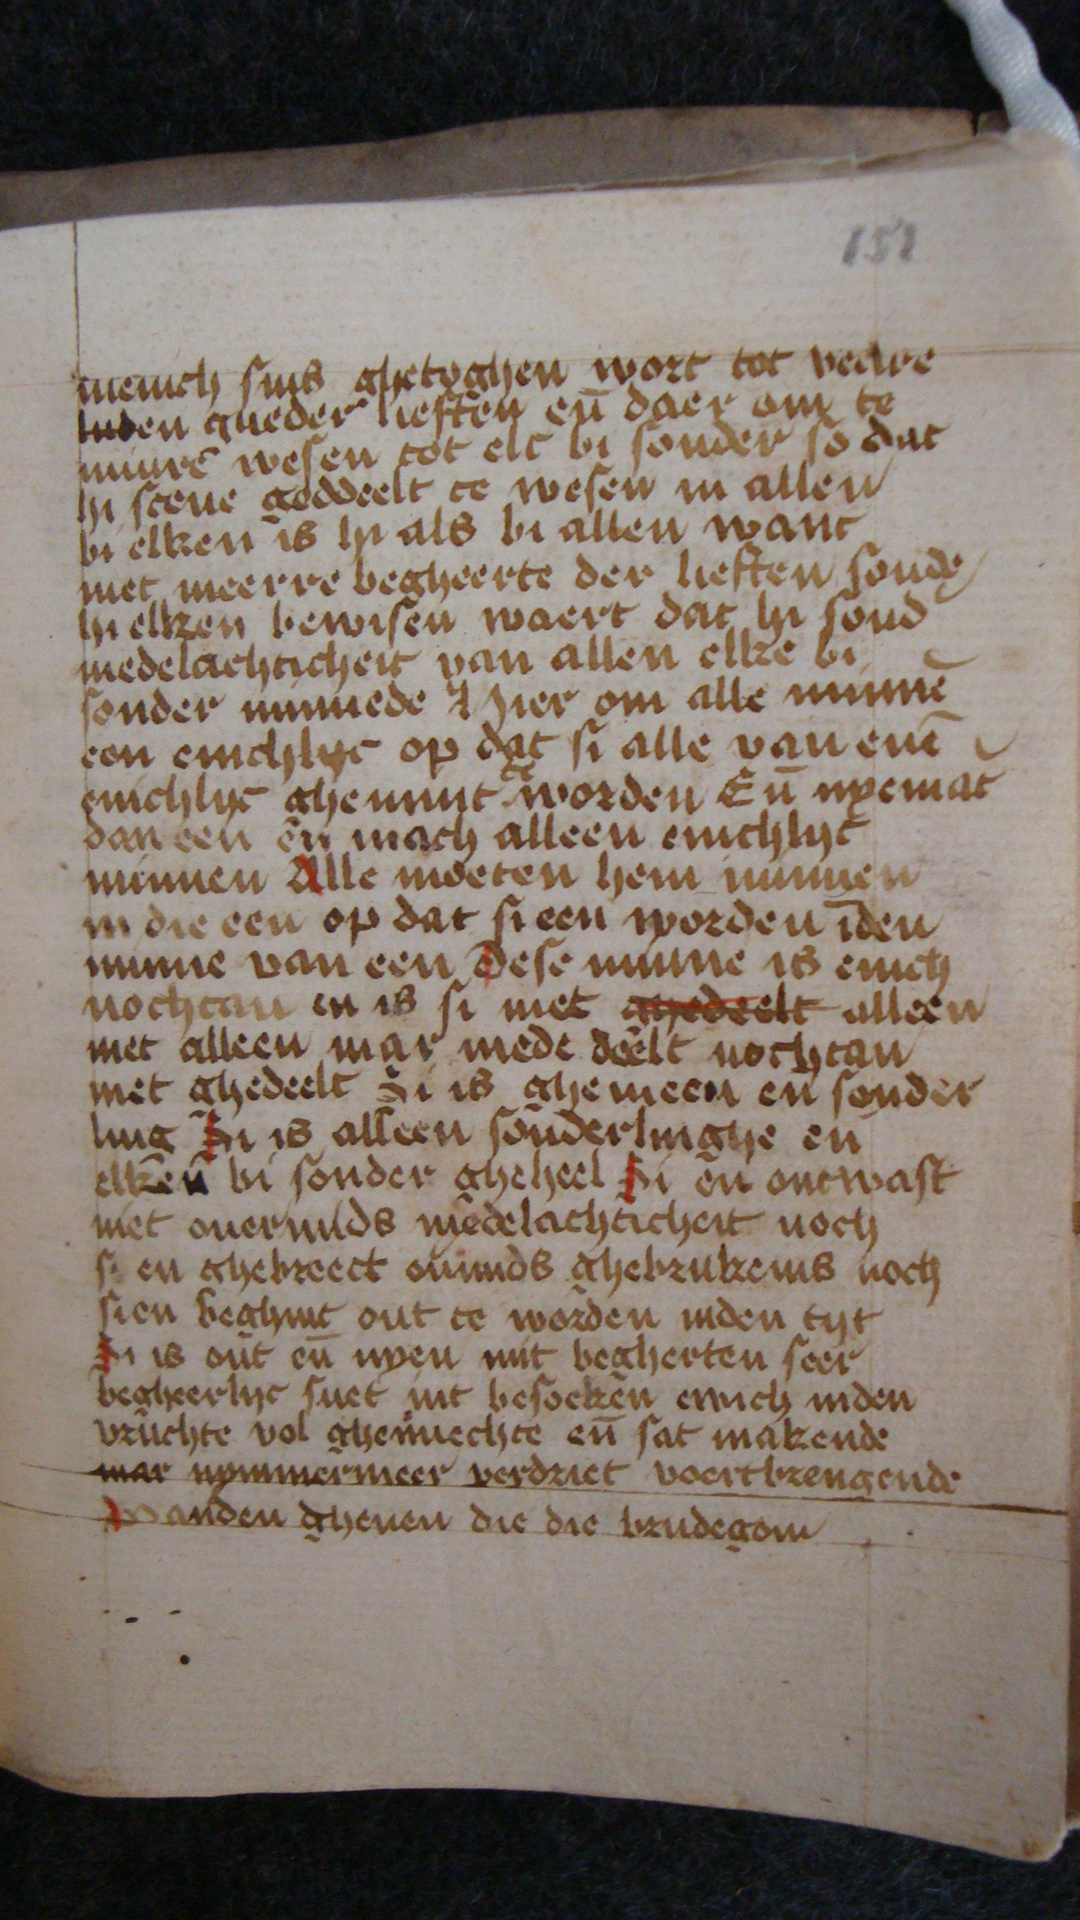 151
menich sins ghetoghen wort tot veelre
luden gueder lieften eñ daer om te
wesen tot elc bi sonder so dat
hi scene geddeelt te wesen in allen
bi elken is hi als bi allen want
niet meerre begheerte der lieften soude
hi elken bewisen waert dat hi sond
medelachticheit van allen elke bi
sonder minnede hier om alle minnē
een einchlyc op dat si alle van enē
einchlyc ghemint te worden Eñ nyemāt
dan een en mach alleen einchlyc
minnen Alle moeten hem minnen
in die een op dat si een worden īden
minne van een Dese minne is enich
nochtan en is si niet ghedeelt alleen
niet alleen mar mede deelt nochtan
niet ghedeelt Si is ghemeen en sonder
ling Si is alleen sonderlinghe en
elken bi sonder gheheel Si en ontwast
niet ouermids medelachticheit noch
si en ghebreect ouimids ghebrukenis noch
si en beghint out te worden inden tyt
Si is out eñ nyen mit begherten seer
begheerlyc suet int besoeken ewich inden
vruchte vol ghenuechte eñ sat makende
mar nymmermeer verdriet voertbrengende
Wanden ghenen die die brudegom